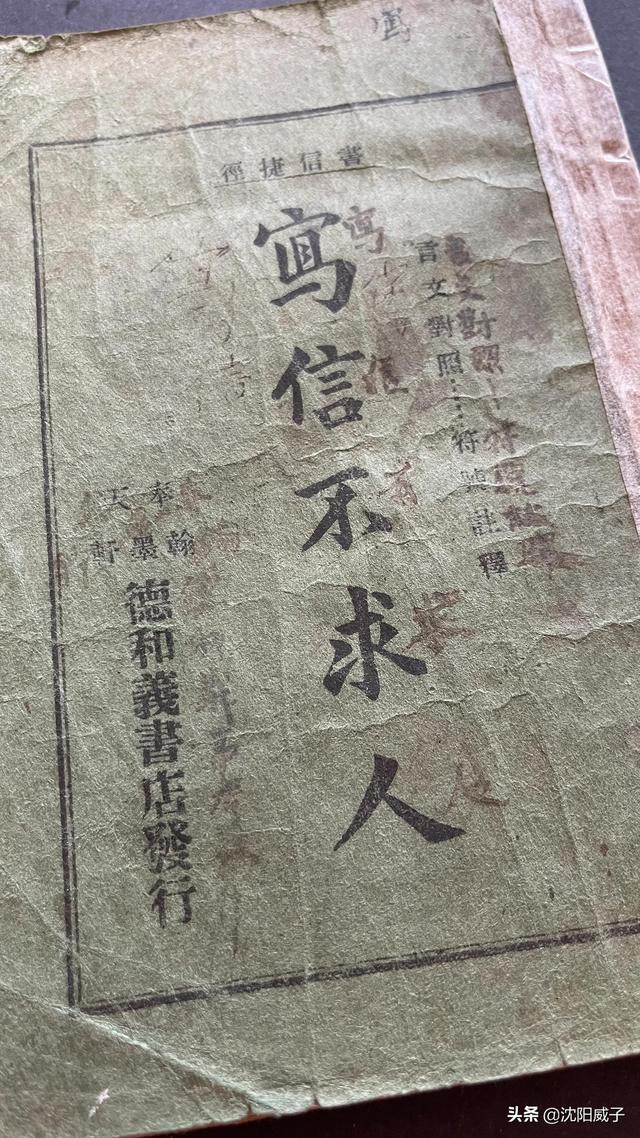 寫
書信捷徑
言文對照……符號註釋
寫信不求人
奉天
翰墨軒
德和義書店發行
头条 @沈阳威子